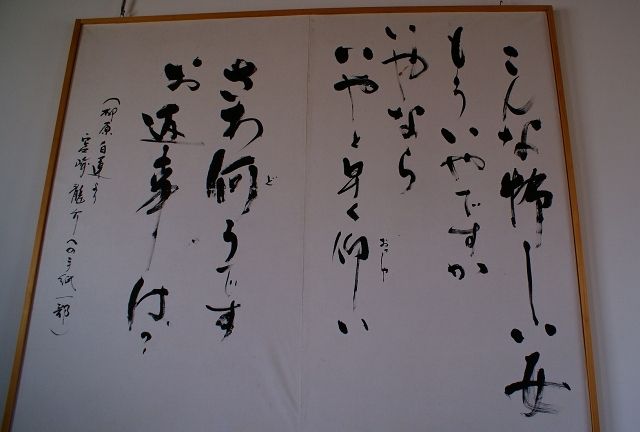 こんな怖しい女
もういやですか
いやなら
いやと早く仰しい
おっしゃ
さあ何うです
ど
お返事は?
(柳原白蓮より
宮崎龍介への手紙一部)